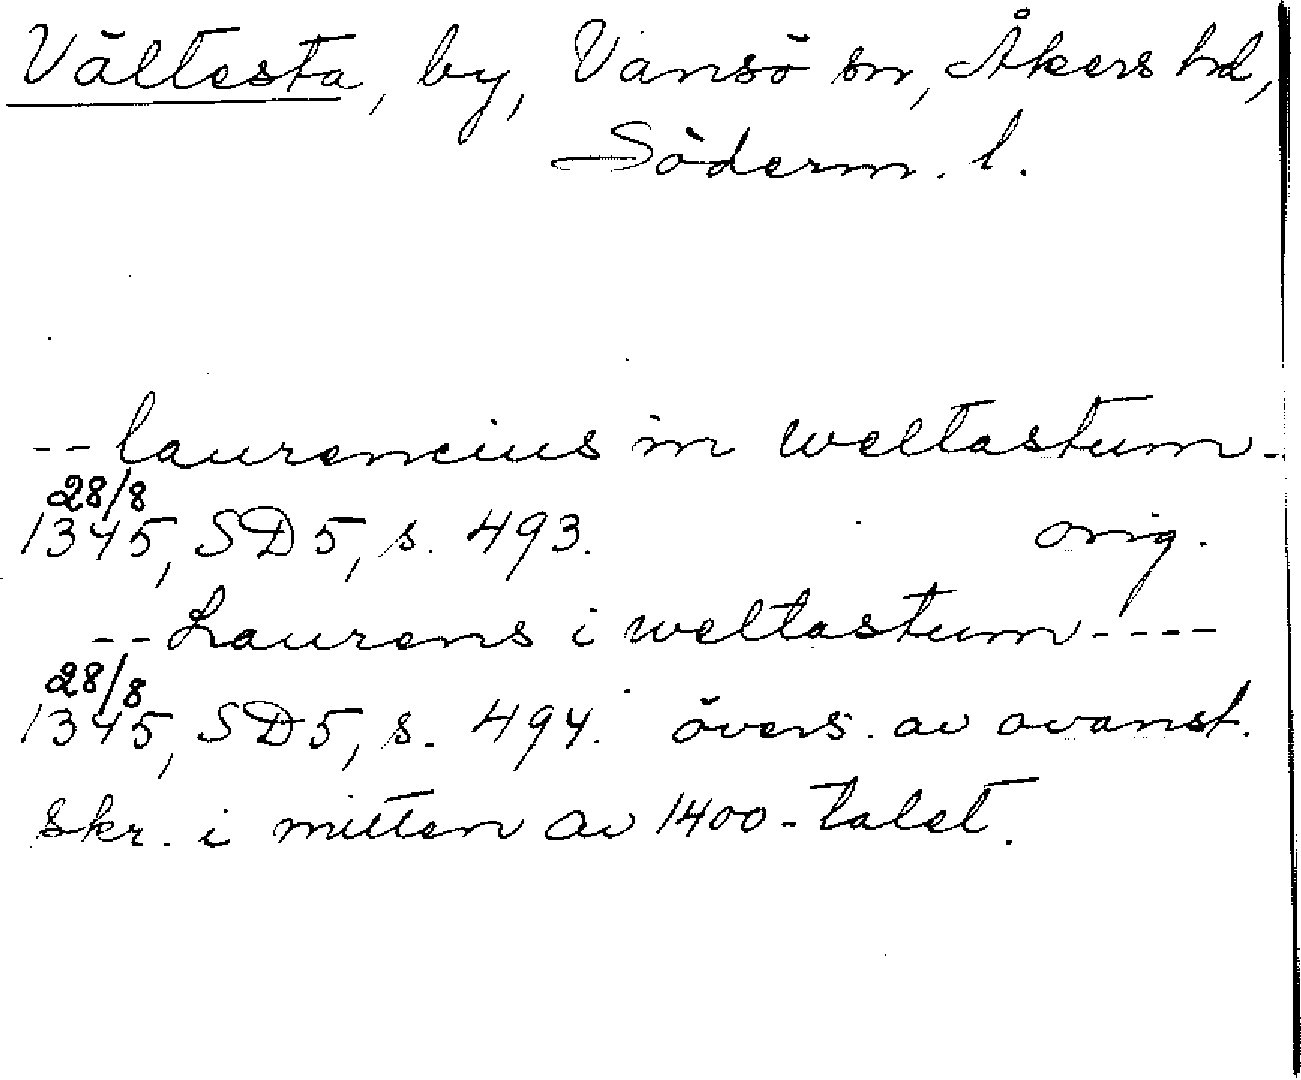 Vältesta, by, Vansö sn, Åkers hd,
Söderm. l.
-- laurencius in weltastum -
28/8
1345, SD 5, s. 493. orig.
-- Laurens i weltastum ----
28/8
1345, SD 5, s. 494. övers. av ovanst.
skr. i mitten av 1400-talet.